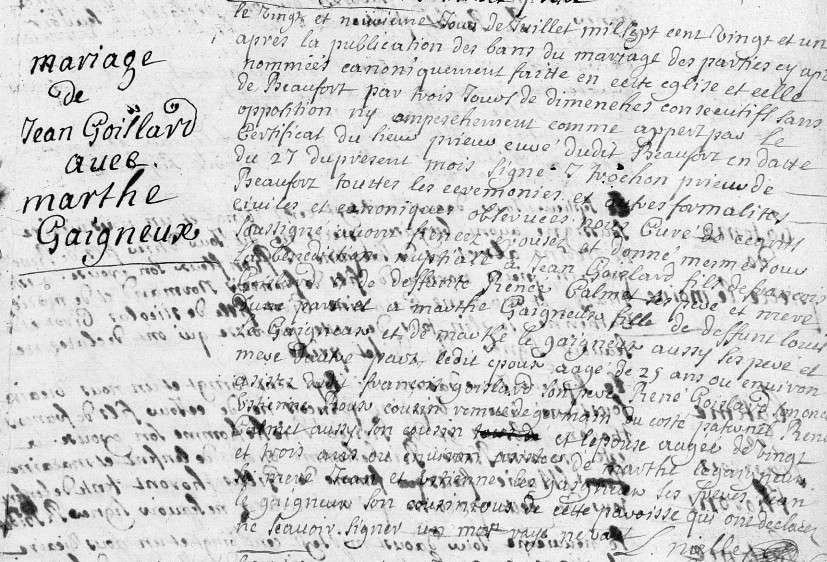 mariage
de
Jean Goislard
avec
marthe
Gaigneux
le vingt et neuvieme Jour de Juillet mil sept cent vingt et un
apres la publication des bans du mariage des parties cy apres
nommées canoniquement faitte en cette eglise et celle
de Beaufort par trois Jours de dimenches consecutifs sans
opposition ny ampeschement comme appert par le
Certificat du sieur prieur curé dudit Beaufort en datte
du 27 du present mois signé Trochon prieur de
Beaufort touttes les ceremonies et autres formalités
civiles et canoniques observées Curé de ceans
soussigné avons fiancez epousez et donné mesme Jour
la Benediction nuptialle a Jean Goislard fils de françois
Goislard et de deffunte Renée Calmet ses pere et mere
d'une part et a marthe Gaigneux fille de deffunt louis
le Gaigneux et de marthe le gaigneux aussy ses pere et
mere d'autre part ledit epoux aagé de 25 ans ou environ
assisté dudit françois Goislard son pere René Goislard
Estienne cousin remué de germain du costé paternel René
Calmet aussy son cousin et lepouse aagée de vingt
et trois ans ou environ assistée de marthe legaigneux
sa mere Jean et estienne les Gaigneux ses freres Jean
le gaigneux son cousin tous de cette paroisse qui ont declarez
ne scavoir signer un mot rayé ne vaut